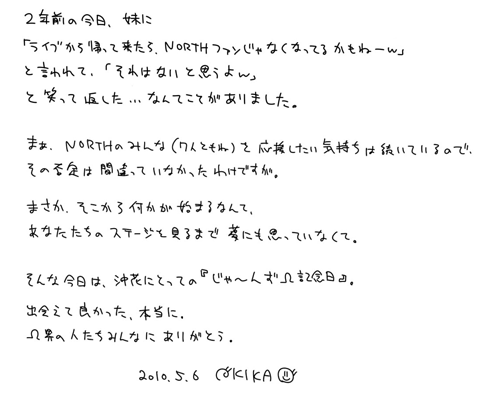 2年前の今日、妹に
「ライブから帰って来たら、NORTHファンじゃなくなってるかもねーw」
と言われて、「それはないと思うよw」
と笑って返した…なんてことがありました。
まぁ、NORTHのみんな(7人ともね)を応援したい気持ちは続いているので、
その否定は間違っていなかったわけですが。
まさか、そこから何かが始まるなんて、
あなたたちのステージを見るまで夢にも思っていなくて。
そんな今日は、沖花にとっての『じゃ〜んずΩ記念日』。
出会えて良かった、本当に。
Ω界の人たちみんなにありがとう。
2010.5.6 OKIKA